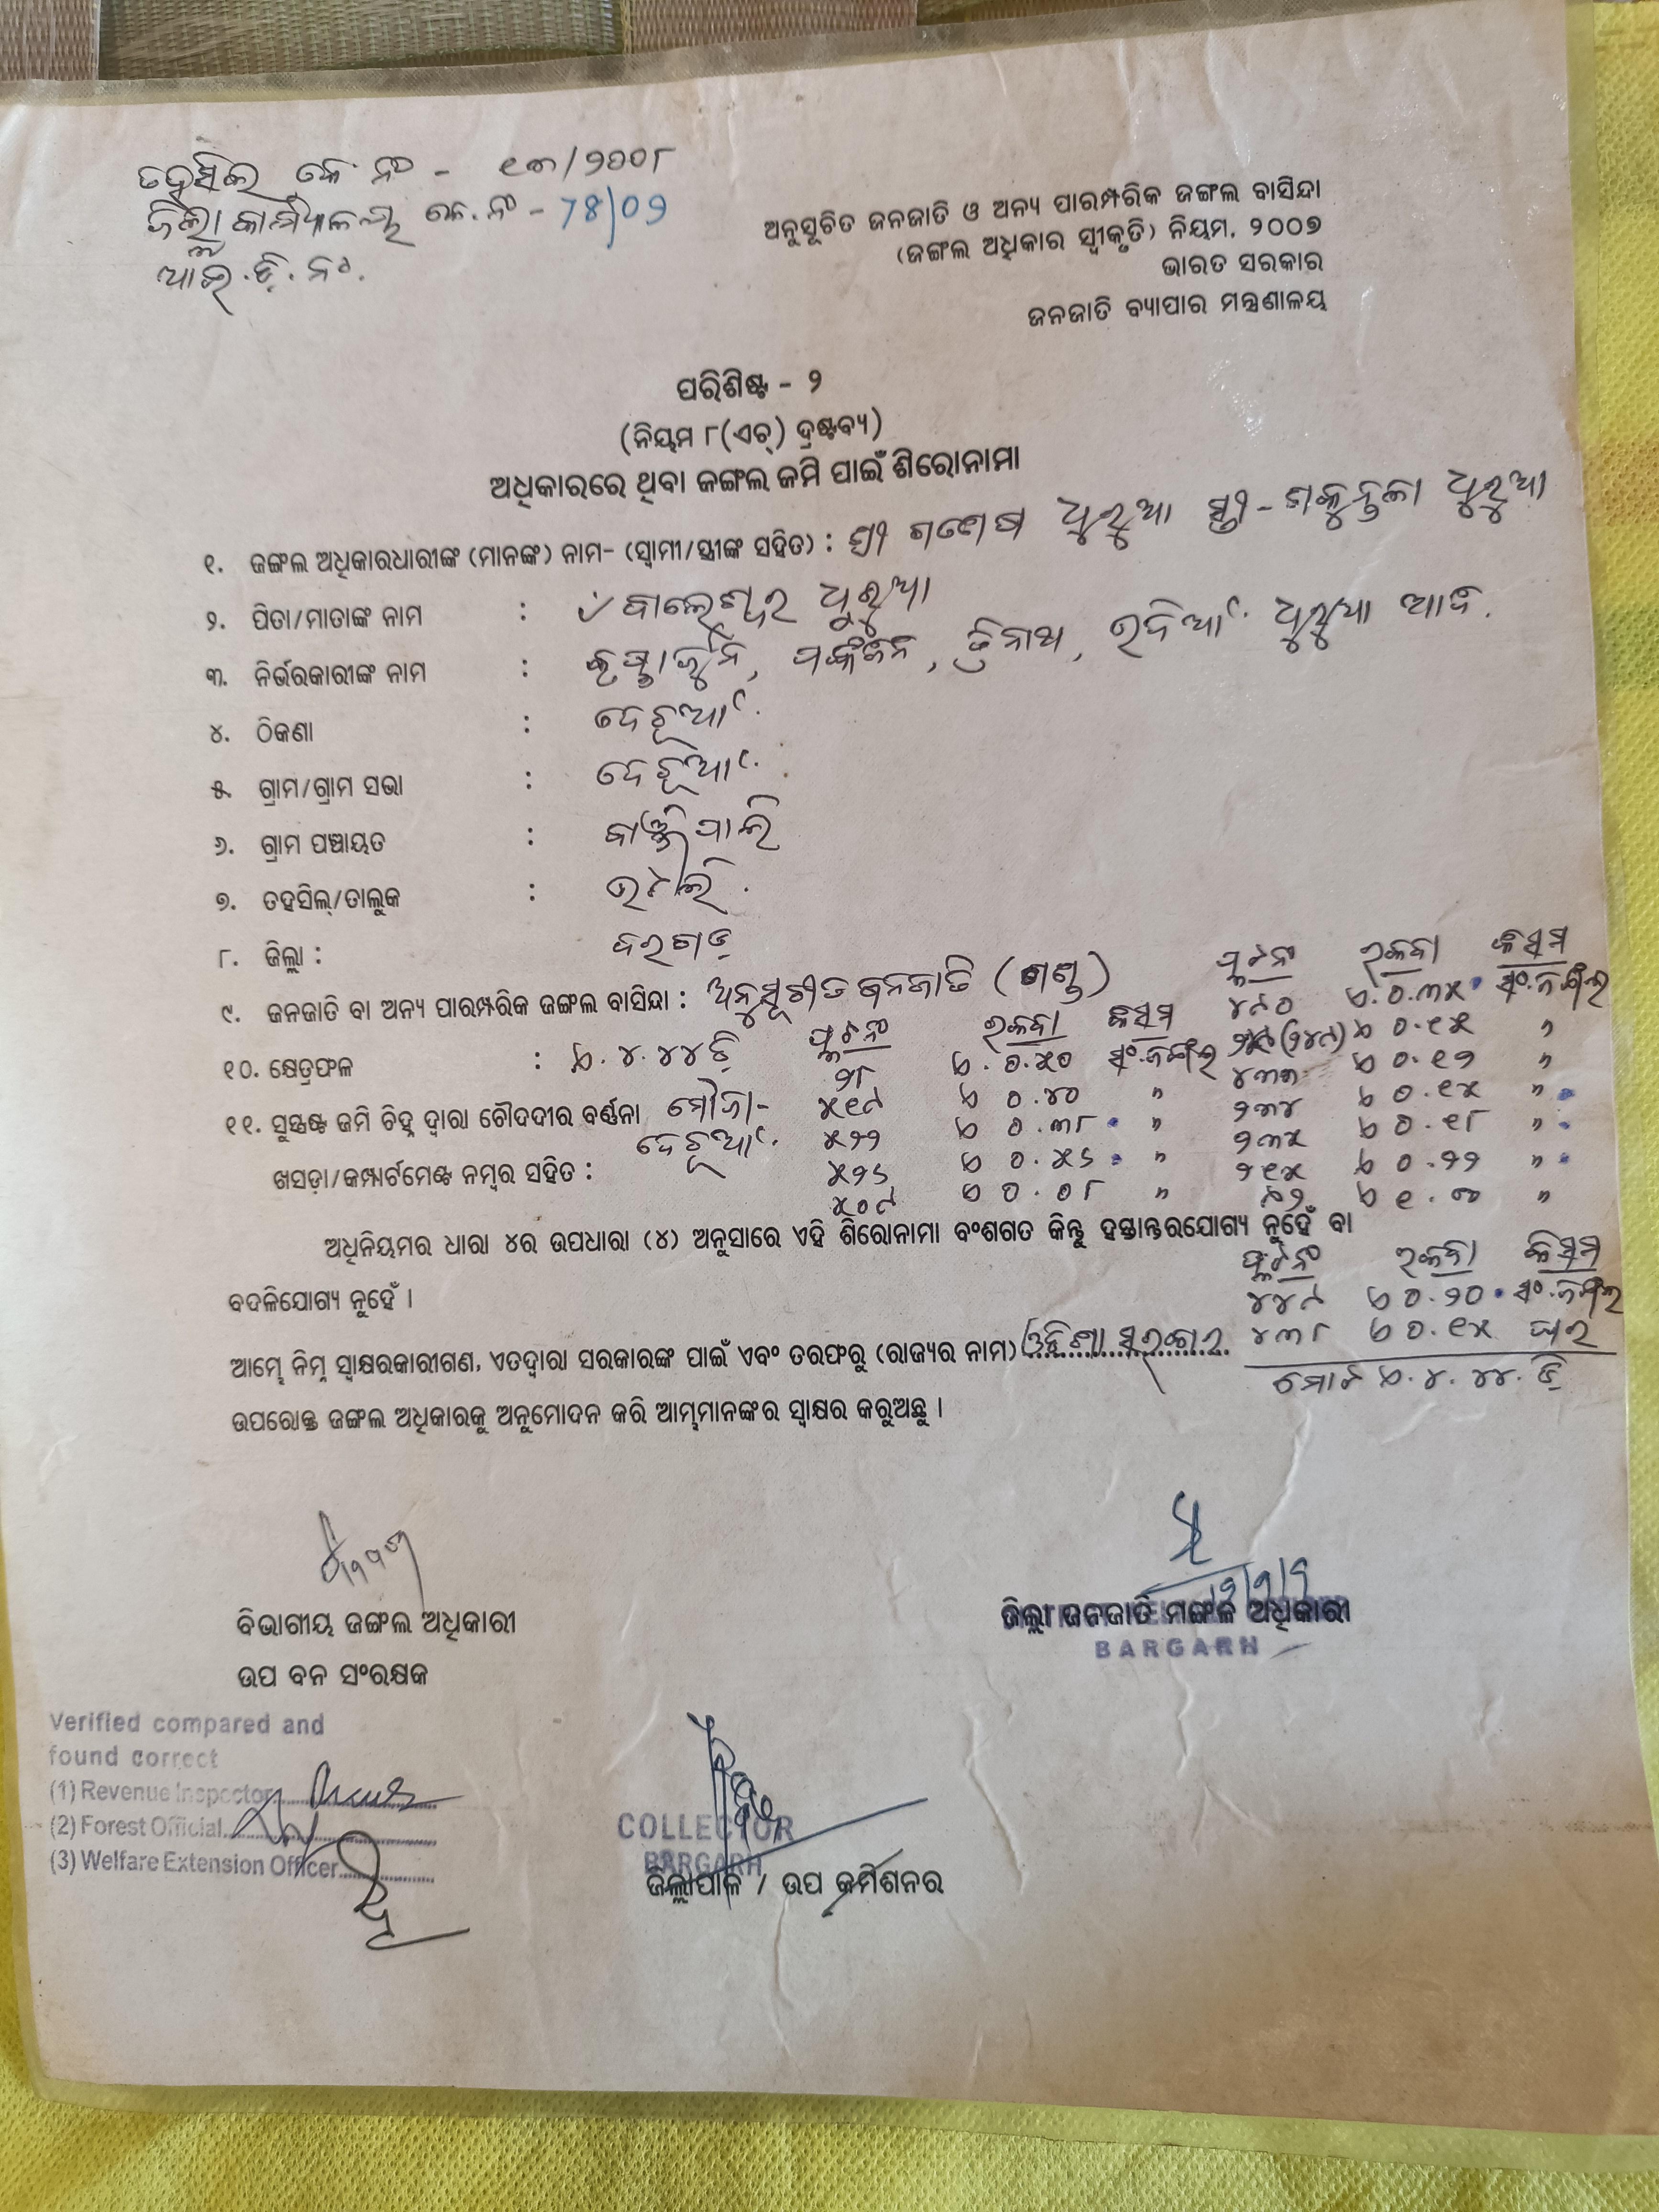 ତହସିଲ କେ ନଂ - ୧୩/୨୦୦୮
ଜିଲ୍ଲା କାର୍ଯ୍ୟାଳୟ କେ. ନଂ - 78/09
ଆଇ.ଡି. ନଂ.
ଅନୁସୂଚିତ ଜନଜାତି ଓ ଅନ୍ୟ ପାରମ୍ପରିକ ଜଙ୍ଗଲ ବାସିନ୍ଦା
(ଜଙ୍ଗଲ ଅଧିକାର ସ୍ୱୀକୃତି) ନିୟମ, ୨୦୦୭
ଭାରତ ସରକାର
ଜନଜାତି ବ୍ୟାପାର ମନ୍ତ୍ରଣାଳୟ
ପରିଶିଷ୍ଟ - ୨
(ନିୟମ ୮(ଏଚ୍) ଦ୍ରଷ୍ଟବ୍ୟ)
ଅଧିକାରରେ ଥିବା ଜଙ୍ଗଲ ଜମି ପାଇଁ ଶିରୋନାମା
୧. ଜଙ୍ଗଲ ଅଧିକାରଧାରୀଙ୍କ (ମାନଙ୍କ) ନାମ- (ସ୍ୱାମୀ/ସ୍ତ୍ରୀଙ୍କ ସହିତ) : ଶ୍ରୀ ଗଣେଷ ଧୁରୁଆ ସ୍ତ୍ରୀ - ଶକୁନ୍ତଳା ଧୁରୁଆ
୨. ପିତା/ମାତାଙ୍କ ନାମ : ବାଲେଶ୍ୱର ଧୁରୁଆ
୩. ନିର୍ଭରକାରୀଙ୍କ ନାମ : କୃଷ୍ଣାର୍ଜୁନ, ତ୍ରିନାଥ, ଧୁରୁଆ ଆଦି.
୪. ଠିକଣା : ଦେହୂଆଁ
୫. ଗ୍ରାମ/ଗ୍ରାମ ସଭା : ଦେହୂଆଁ
୬. ଗ୍ରାମ ପଞ୍ଚାୟତ :
୭. ତହସିଲ୍/ତାଲୁକ : ଭଟଲି.
୮. ଜିଲ୍ଲା : ବରଗଡ଼
୯. ଜନଜାତି ବା ଅନ୍ୟ ପାରମ୍ପରିକ ଜଙ୍ଗଲ ବାସିନ୍ଦା : ଅନୁସୂଚୀତ ଜନଜାତି (ଗଣ୍ଡ)
୧୦. କ୍ଷେତ୍ରଫଳ : ଏ. ୪. ୪୪ ଡି
୧୧. ସୁସ୍ପଷ୍ଟ ଜମି ଚିହ୍ନ ଦ୍ୱାରା ଚୌଦଦୀର ବର୍ଣ୍ଣନା ମୌଜା-
ଖସଡ଼ା/କମ୍ପାର୍ଟମେଣ୍ଟ ନମ୍ବର ସହିତ : ଦେହୂଆଁ
ପ୍ଲଟ ନଂ ରକବା କିସମ
୨୮ ଏ. ୦.୫୦ ସଂ.ଜଙ୍ଗଲ
୫୧୯ ଏ ୦.୪୦ "
୫୨୨ ଏ ୦.୩୮ "
୫୨୬ ଏ ୦.୫୬ "
୫୦୯ ଏ ୦.୦୮ "
ପ୍ଲଟ ନଂ ରକବା କିସମ
୪୯୦ ଏ.୦.୩୫ ସଂ.ଜଙ୍ଗଲ
ଏ ୦.୧୫ "
୪୩୩ ଏ ୦.୧୨ "
୨୩୪ ଏ ୦.୧୫ "
୨୩୫ ଏ ୦.୧୮ "
୨୧୫ ଏ ୦.୨୨ "
ଏ ୧.୦୦ "
ଅଧିନିୟମର ଧାରା ୪ର ଉପଧାରା (୪) ଅନୁସାରେ ଏହି ଶିରୋନାମା ବଂଶଗତ କିନ୍ତୁ ହସ୍ତାନ୍ତରଯୋଗ୍ୟ ନୁହେଁ ବା
ବଦଳିଯୋଗ୍ୟ ନୁହେଁ ।
ପ୍ଲଟ ନଂ ରକବା କିସମ
୪୪୯ ଏ ୦.୨୦ ସଂ.ଜଙ୍ଗଲ
୪୩୮ ଏ ୦.୧୫ ଘର
ମୋଟ ଏ. ୪. ୪୪. ଡି
ଆମ୍ଭେ ନିମ୍ନ ସ୍ୱାକ୍ଷରକାରୀଗଣ, ଏତଦ୍ୱାରା ସରକାରଙ୍କ ପାଇଁ ଏବଂ ତରଫରୁ (ରାଜ୍ୟର ନାମ) ଓଡିଶା ସରକାର
ଉପରୋକ୍ତ ଜଙ୍ଗଲ ଅଧିକାରକୁ ଅନୁମୋଦନ କରି ଆମ୍ଭମାନଙ୍କର ସ୍ୱାକ୍ଷର କରୁଅଛୁ ।
ବିଭାଗୀୟ ଜଙ୍ଗଲ ଅଧିକାରୀ
ଉପ ବନ ସଂରକ୍ଷକ
ଜିଲ୍ଲା ଜନଜାତି ମଙ୍ଗଳ ଅଧିକାରୀ
BARGARH
Verified compared and
found correct
(1) Revenue Inspector
(2) Forest Official
(3) Welfare Extension Officer
COLLECTOR
BARGARH
ଜିଲ୍ଲାପାଳ / ଉପ କମିଶନର